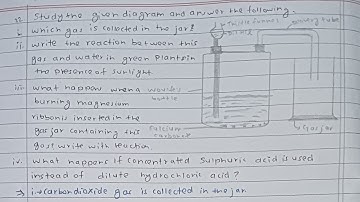 Study the given diagram and answer the following.
i. which gas is collected in the jar?
ii. write the reaction between this
gas and water in green plants in
the presence of sunlight.
iii. what happen when a
burning magnesium
ribbon is inserted in the
gas jar containing this
gas? write with reaction
iv. what happens if concentrated Sulphuric acid is used
instead of dilute hydrochloric acid?
→ i. → carbondioxide gas is collected in the jar.
Thistle funnel
delivery tube
woulfe's
bottle
Calcium
carbonate
Gas jar